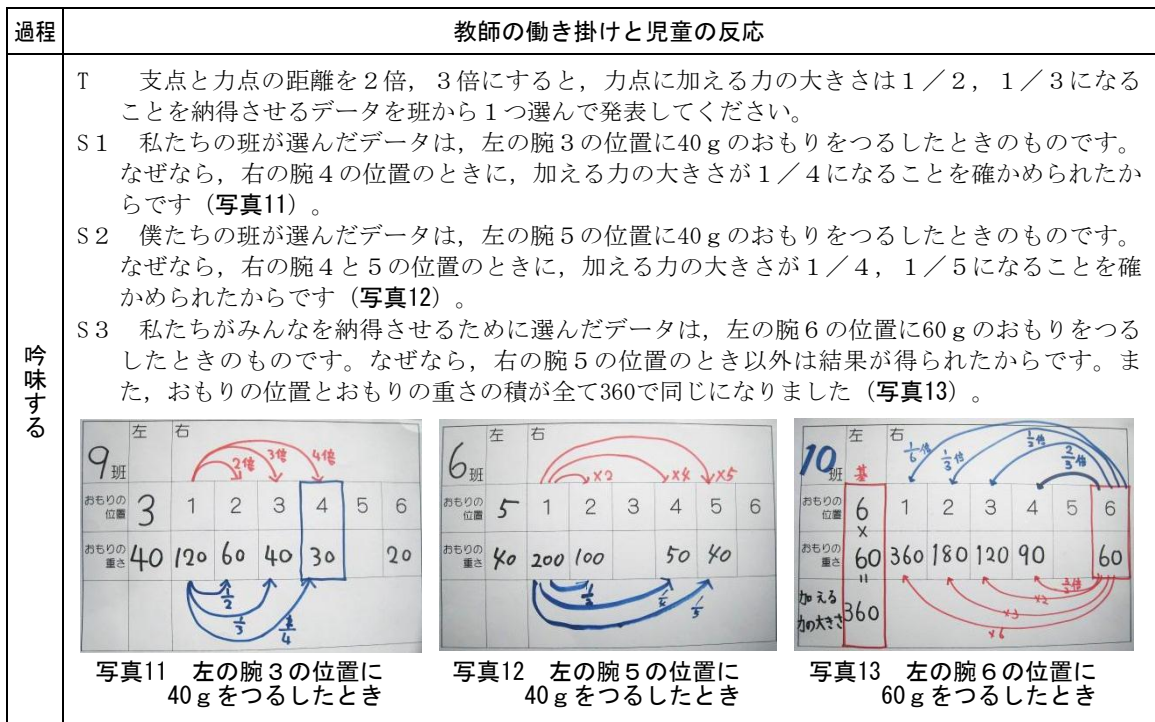 過程
教師の働き掛けと児童の反応
吟味する
T 支点と力点の距離を2倍,3倍にすると,力点に加える力の大きさは1/2,1/3になる
ことを納得させるデータを班から1つ選んで発表してください。
S1 私たちの班が選んだデータは,左の腕3の位置に40gのおもりをつるしたときのものです。
なぜなら,右の腕4の位置のときに,加える力の大きさが1/4になることを確かめられたか
らです(写真11)。
S2 僕たちの班が選んだデータは,左の腕5の位置に40gのおもりをつるしたときのものです。
なぜなら,右の腕4と5の位置のときに,加える力の大きさが1/4,1/5になることを確
かめられたからです(写真12)。
S3 私たちがみんなを納得させるために選んだデータは,左の腕6の位置に60gのおもりをつる
したときのものです。なぜなら,右の腕5の位置のとき以外は結果が得られたからです。ま
た,おもりの位置とおもりの重さの積が全て360で同じになりました(写真13)。
9班 左 右
2倍 3倍 4倍
おもりの位置 3 1 2 3 4 5 6
おもりの重さ 40 120 60 40 30 20
1/2 1/3 1/4
写真11 左の腕3の位置に
40gをつるしたとき
6班 左 右
×2 ×4 ×5
おもりの位置 5 1 2 3 4 5 6
おもりの重さ 40 200 100 50 40
1/2 1/4 1/5
写真12 左の腕5の位置に
40gをつるしたとき
10班 左 右
基 1/6倍 1/3倍 1/2倍 2/3倍
おもりの位置 6 1 2 3 4 5 6
×
おもりの重さ 60 360 180 120 90 60
=
加える力の大きさ 360
×2 ×3 ×6
写真13 左の腕6の位置に
60gをつるしたとき